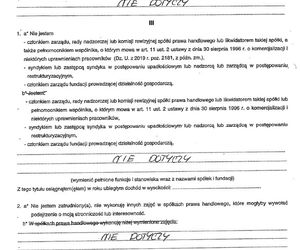 NIE DOTYCZY
III
1. a* Nie jestem
- członkiem zarządu, rady nadzorczej lub komisji rewizyjnej spółki prawa handlowego lub likwidatorem takiej spółki, a
także pełnomocnikiem wspólnika, o którym mowa w art. 11 ust. 2 ustawy z dnia 30 sierpnia 1996 r. o komercjalizacji i
niektórych uprawnieniach pracowników (Dz. U. z 2019 r. poz. 2181, z późn. zm.),
- syndykiem lub zastępcą syndyka w postępowaniu upadłościowym lub nadzorcą lub zarządcą w postępowaniu
restrukturyzacyjnym,
- członkiem zarządu fundacji prowadzącej działalność gospodarczą.
b* Jestem*
- członkiem zarządu, rady nadzorczej lub komisji rewizyjnej spółki prawa handlowego lub likwidatorem takiej spółki lub
pełnomocnikiem wspólnika, o którym mowa w art. 11 ust. 2 ustawy z dnia 30 sierpnia 1996 r. o komercjalizacji i
niektórych uprawnieniach pracowników,
- syndykiem lub zastępcą syndyka w postępowaniu upadłościowym lub nadzorcą lub zarządcą w postępowaniu
restrukturyzacyjnym,
- członkiem zarządu fundacji prowadzącej działalność gospodarczą.
NIE DOTYCZY
(wymienić pełnione funkcje i stanowiska wraz z nazwami spółek i fundacji)
Z tego tytułu osiągnąłem(ęłam) w roku ubiegłym dochód w wysokości:
2. a* Nie jestem zatrudniony(a), nie wykonuję innych zajęć w spółkach prawa handlowego, które mogłyby wywołać
podejrzenie o moją stronniczość lub interesowność.
b* W spółkach prawa handlowego wykonuję niżej wymienione zajęcia:
NIE DOTYCZY